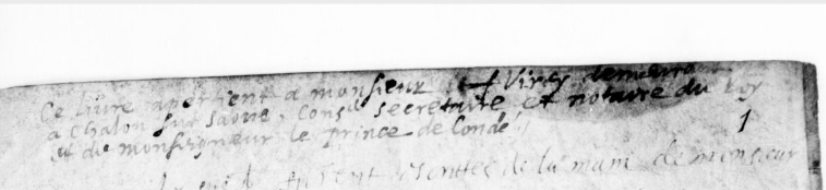 Ce livre apertient a monsieur Virey demeurant
a Chalon sur saone, cons.er secretaire et notaire du Roy
et de monseigneur le prince de Condé
1
escrittes de la main de monsieur